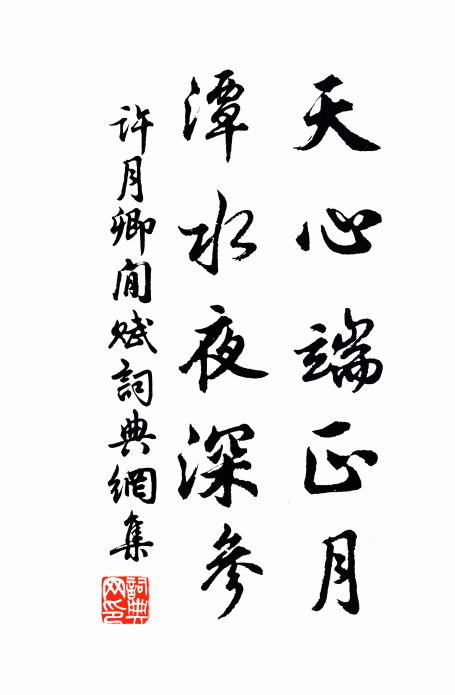 天心端正月
潭水夜深參
許月卿閒賦詞典網集
詞典網印